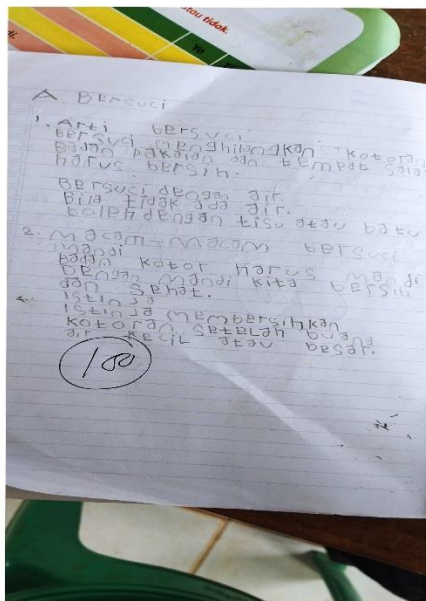 atau tidak.
Ya
A Bersuci
1. Arti bersuci.
Bersuci menghilangkan kotoran
Badan pakaian dan tempat salat
harus bersih.
Bersuci dengan air.
Bila tidak ada air.
boleh dengan tisu atau batu
2. macam-macam bersuci
mandi
badan kotor harus mandi
Dengan mandi kita bersih
dan sehat.
istinja
istinja membersihkan
kotoran setelah buang
air kecil atau besar.
100